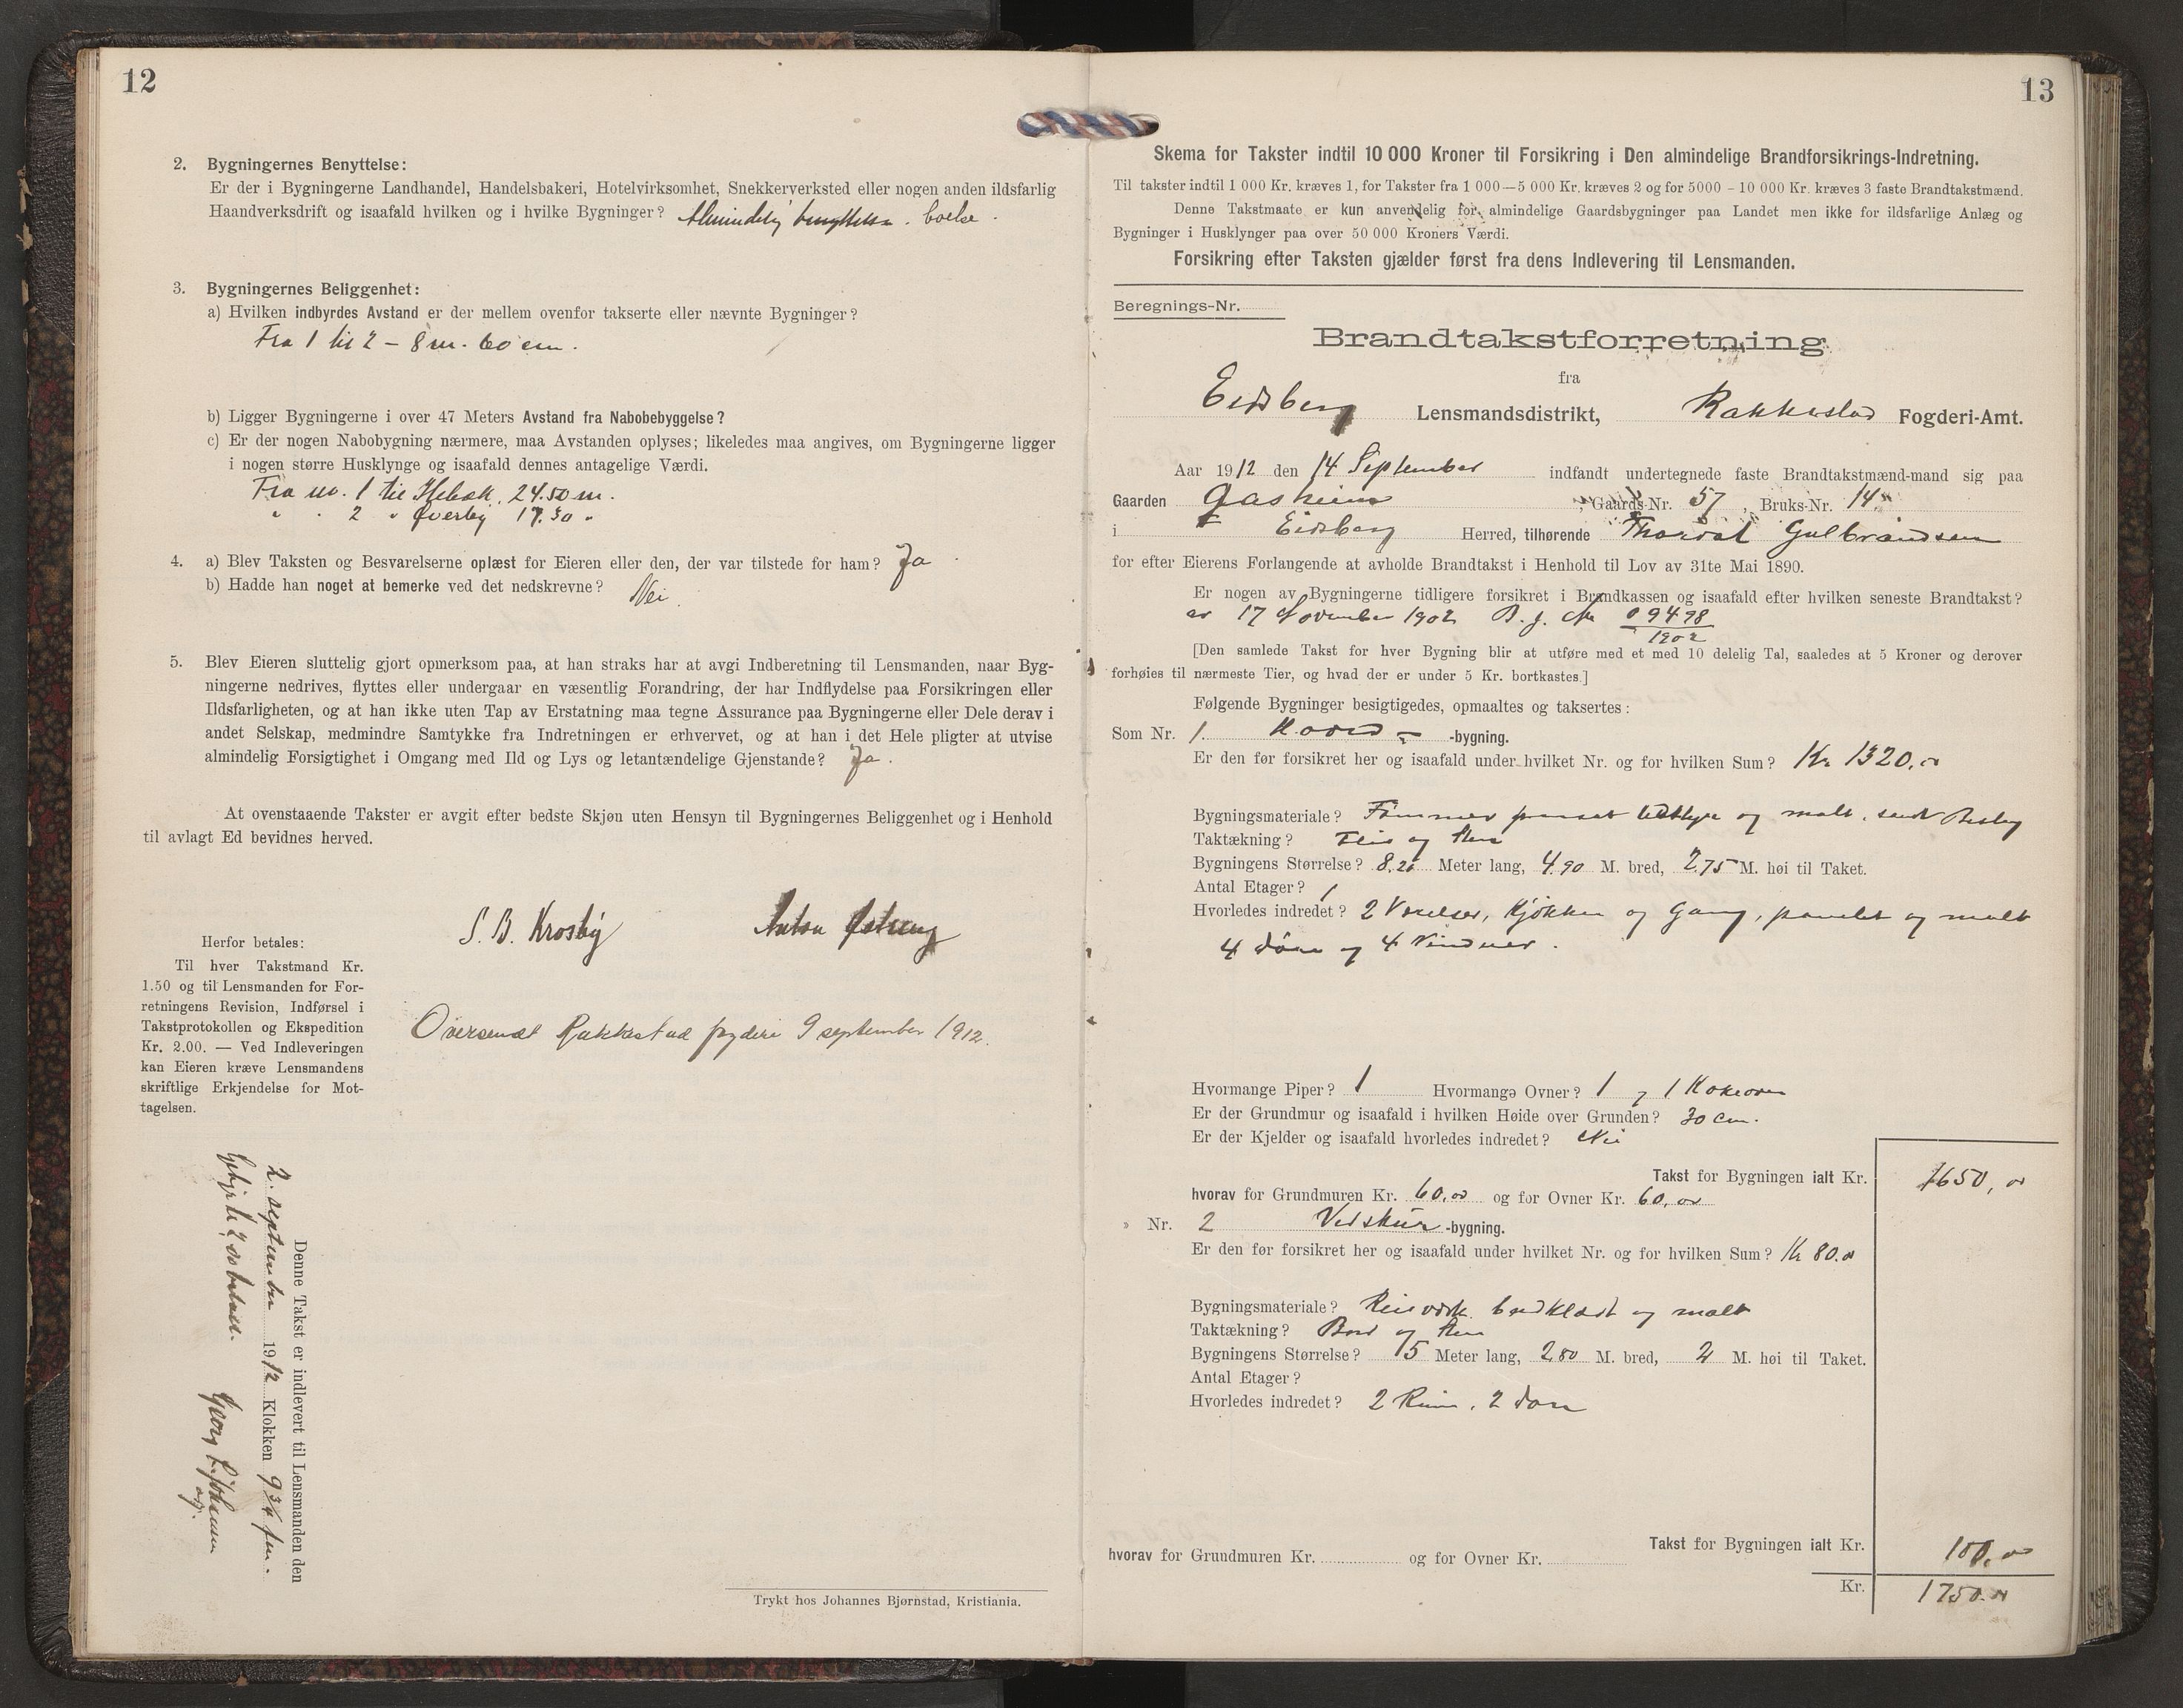 12
2. Bygningernes Benyttelse:
Er der i Bygningerne Landhandel, Handelsbakeri, Hotelvirksomhet, Snekkerverksted eller nogen anden ildsfarlig
Haandverksdrift og isaafald hvilken og i hvilke Bygninger? Almindelig benyttelse. boelse.
3. Bygningernes Beliggenhet:
a) Hvilken indbyrdes Avstand er der mellem ovenfor takserte eller nævnte Bygninger?
Fra 1 til 2 – 8 m. 60 cm.
b) Ligger Bygningerne i over 47 Meters Avstand fra Nabobebyggelse?
c) Er der nogen Nabobygning nærmere, maa Avstanden oplyses; likeledes maa angives, om Bygningerne ligger
i nogen større Husklynge og isaafald dennes antagelige Værdi.
Fra nr. 1 til 24.50 m.
" " 2 " Øverby 17.30 "
4. a) Blev Taksten og Besvarelserne oplæst for Eieren eller den, der var tilstede for ham? Ja
b) Hadde han noget at bemerke ved det nedskrevne? Nei.
5. Blev Eieren sluttelig gjort opmerksom paa, at han straks har at avgi Indberetning til Lensmanden, naar Byg-
ningerne nedrives, flyttes eller undergaar en væsentlig Forandring, der har Indflydelse paa Forsikringen eller
Ildsfarligheten, og at han ikke uten Tap av Erstatning maa tegne Assurance paa Bygningerne eller Dele derav i
andet Selskap, medmindre Samtykke fra Indretningen er erhvervet, og at han i det Hele pligter at utvise
almindelig Forsigtighet i Omgang med Ild og Lys og letantændelige Gjenstande? Ja.
At ovenstaaende Takster er avgit efter bedste Skjøn uten Hensyn til Bygningernes Beliggenhet og i Henhold
til avlagt Ed bevidnes herved.
S. B. Krosby Anton Østreng
Herfor betales:
Til hver Takstmand Kr.
1.50 og til Lensmanden for For-
retningens Revision, Indførsel i
Takstprotokollen og Ekspedition
Kr. 2.00. — Ved Indleveringen
kan Eieren kræve Lensmandens
skriftlige Erkjendelse for Mot-
tagelsen.
Oversendt Rakkestad fogderi 9 september 1912.
Denne Takst er indlevert til Lensmanden den
2. september 1912 Klokken 9 3/4 fm.
Gebyr kr 2,00 betalt.
Georg
Trykt hos Johannes Bjørnstad, Kristiania.
13
Skema for Takster indtil 10 000 Kroner til Forsikring i Den almindelige Brandforsikrings-Indretning.
Til takster indtil 1 000 Kr. kræves 1, for Takster fra 1 000—5 000 Kr. kræves 2 og for 5000 – 10 000 Kr. kræves 3 faste Brandtakstmænd.
Denne Takstmaate er kun anvendelig for almindelige Gaardsbygninger paa Landet men ikke for ildsfarlige Anlæg og
Bygninger i Husklynger paa over 50 000 Kroners Værdi.
Forsikring efter Taksten gjælder først fra dens Indlevering til Lensmanden.
Beregnings-Nr.
Brandtakstforretning
fra
Eidsberg Lensmandsdistrikt, Rakkestad Fogderi-Amt.
Aar 1912 den 14 September indfandt undertegnede faste Brandtakstmænd-mand sig paa
Gaarden Gasheim Gaards-Nr. 57, Bruks-Nr. 14
i Eidsberg Herred, tilhørende Thorval Gulbrandsen
for efter Eierens Forlangende at avholde Brandtakst i Henhold til Lov av 31te Mai 1890.
Er nogen av Bygningerne tidligere forsikret i Brandkassen og isaafald efter hvilken seneste Brandtakst?
av 17 November 1902 B. j. No 09498
1902
[Den samlede Takst for hver Bygning blir at utføre med et med 10 delelig Tal, saaledes at 5 Kroner og derover
forhøies til nærmeste Tier, og hvad der er under 5 Kr. bortkastes.]
Følgende Bygninger besigtigedes, opmaaltes og taksertes:
Som Nr. 1. Hoved -bygning.
Er den før forsikret her og isaafald under hvilket Nr. og for hvilken Sum? Kr 1320.00
Bygningsmateriale? Tømmer panelt og malt,
Taktækning? Flis og sten
Bygningens Størrelse? 8.20 Meter lang, 4.90 M. bred, 2.75 M. høi til Taket.
Antal Etager? 1
Hvorledes indredet? 2 Værelser, Kjøkken og Gang, panelet og malt
4 døre og 4 Vinduer.
Hvormange Piper? 1 Hvormange Ovner? 1 og 1 Kokeovn
Er der Grundmur og isaafald i hvilken Høide over Grunden? 30 cm.
Er der Kjelder og isaafald hvorledes indredet? Nei
Takst for Bygningen ialt Kr. 1650,00
hvorav for Grundmuren Kr. 60,00 og for Ovner Kr. 60,00
» Nr. 2 Vedskur -bygning.
Er den før forsikret her og isaafald under hvilket Nr. og for hvilken Sum? Kr 80.00
Bygningsmateriale? Reisverk bordklædt og malt
Taktækning? Bord og sten
Bygningens Størrelse? 15 Meter lang, 2.80 M. bred, 2 M. høi til Taket.
Antal Etager?
Hvorledes indredet? 2 Rum, 2 døre
Takst for Bygningen ialt Kr. 100.00
hvorav for Grundmuren Kr. og for Ovner Kr.
Kr. 1750.00